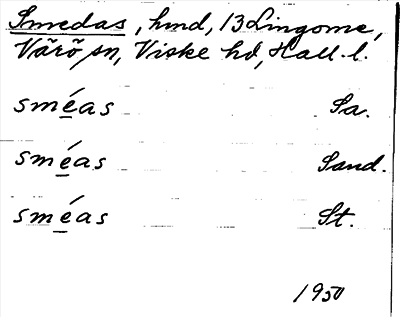 Smedas, hmd, 13 Lingome,
Värö sn, Viske hd, Hall. l.
sméas Sa.
sméas Sand.
sméas St.
1950